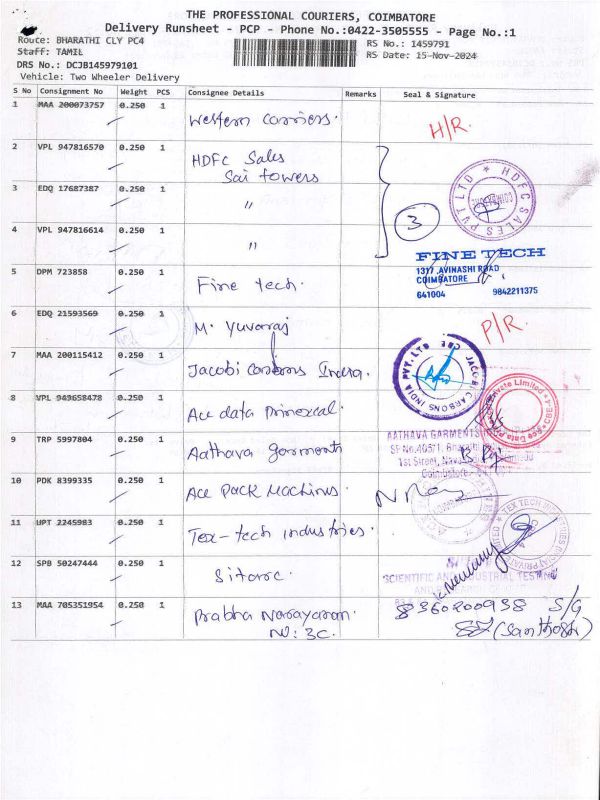 THE PROFESSIONAL COURIERS, COIMBATORE
Delivery Runsheet - PCP - Phone No.:0422-3505555 - Page No.:1
Route: BHARATHI CLY PC4
RS No.: 1459791
Staff: TAMIL
RS Date: 15-Nov-2024
DRS No.: DCJB145979101
Vehicle: Two Wheeler Delivery
S No Consignment No Weight PCS Consignee Details Remarks Seal & Signature
1 MAA 200073757 0.250 1 Western Carriers. H/R.
2 VPL 947816570 0.250 1 HDFC Sales
Sai towers
HDFC SALES PVT LTD
3 EDQ 17687387 0.250 1 " 3
4 VPL 947816614 0.250 1 "
FINE TECH
1317, AVINASHI ROAD
COIMBATORE
641004 9842211375
5 DPM 723858 0.250 1 Fine tech.
6 EDQ 21593569 0.250 1 M. Yuvaraj P/R.
7 MAA 200115412 0.250 1 Jacobi Carbons India.
JACOBI CARBONS INDIA PVT. LTD CBE
8 VPL 949658478 0.250 1 Ace data
Private Limited
9 TRP 5997804 0.250 1 Aathava garments
AATHAVA GARMENTS
1st Street,
Coimbatore
10 PDK 8399335 0.250 1 Ace Pack Machines.
11 UPT 2245983 0.250 1 Tex-tech industries.
TEX TECH INDUSTRIES
12 SPB 50247444 0.250 1 Sitarc.
SCIENTIFIC AND INDUSTRIAL TESTING
13 MAA 705351954 0.250 1 Prabha Narayanan. 8360200938 S/G
NO: 3C. (Santhosh)